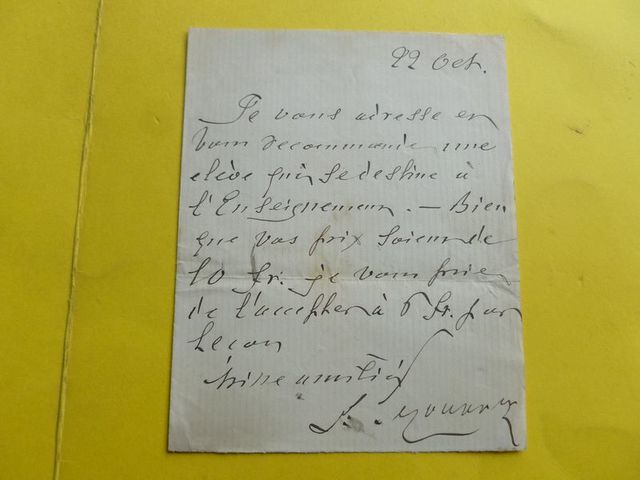 22 Oct.
Je vous adresse en
vous recommandant une
élève qui se destine à
l'Enseignement. — Bien
que vos prix soient de
10 fr. je vous prie
de l'accepter à 6 fr. par
Leçon
Mille amitiés